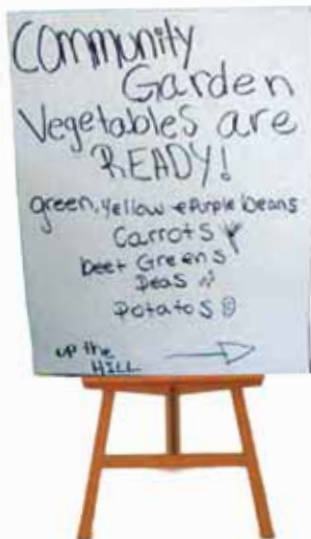 Community
Garden
Vegetables are
READY!
green, yellow & Purple beans
Carrots
beet Greens
Peas
Potatos
up the
HILL